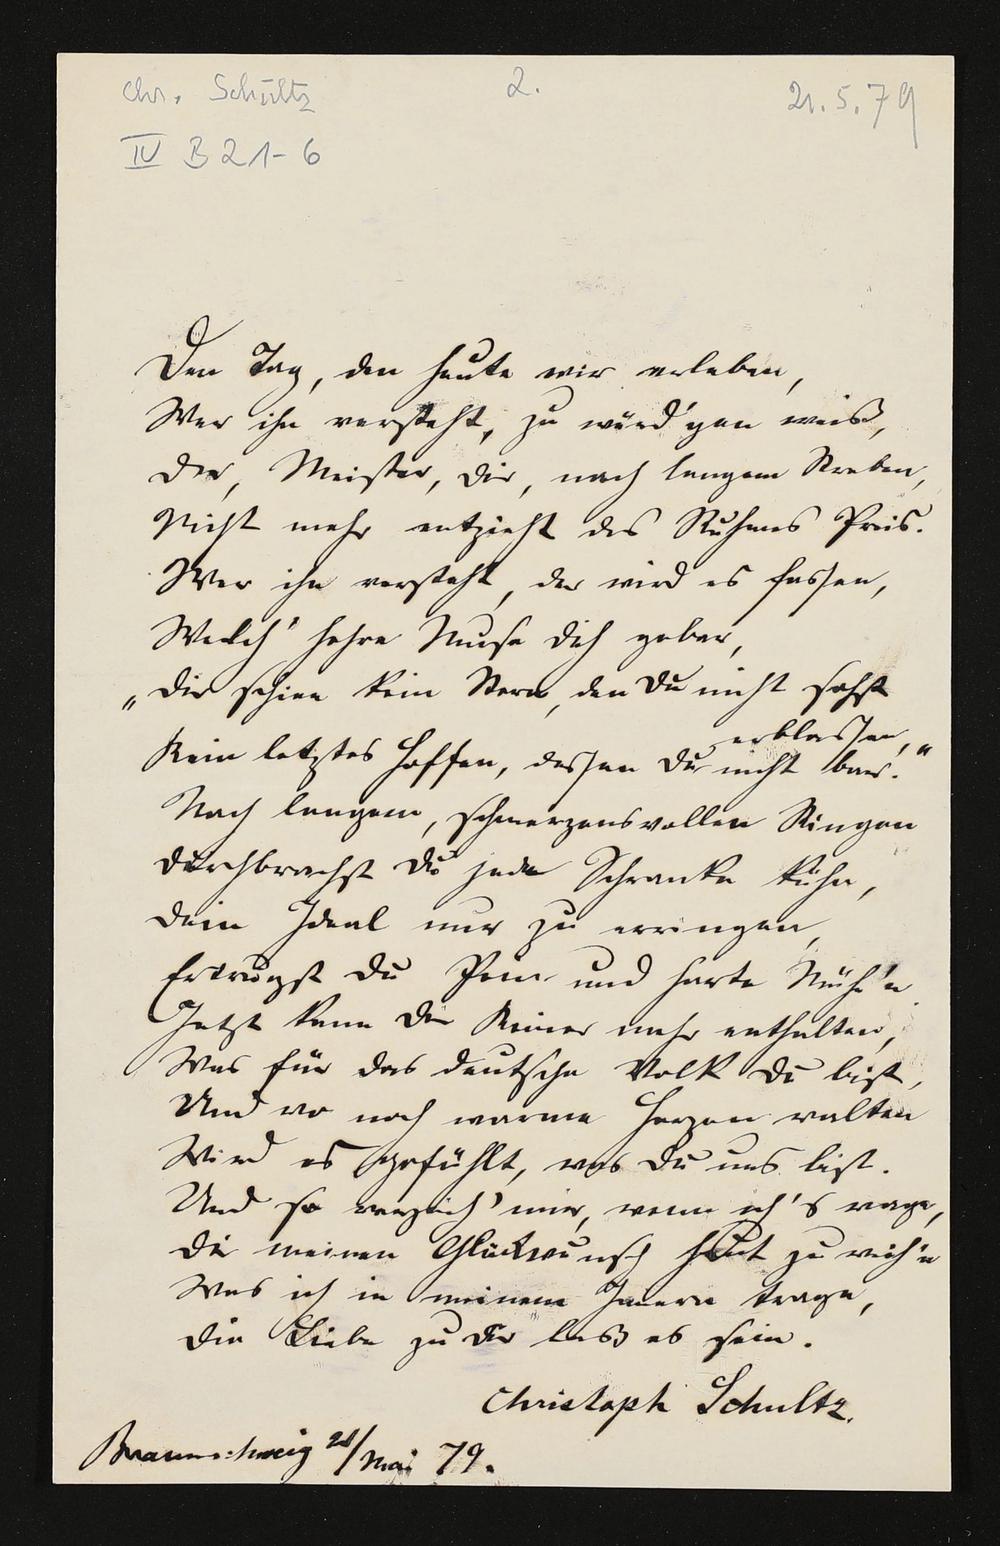 Chr. Schultz 2. 21.5.79
IV B 21-6
Den Tag, den heute wir erleben,
Wer ihn versteht, zu würd'gen weis,
Der, Meister, Dir, nach langem Streben,
Nicht mehr entzieht des Ruhmes Preis.
Wer ihn versteht, der wird es fassen,
Welch' hehre Muse Dich gebar,
„Dir schien kein Stern, den Du nicht sahst
erblassen,
Kein letztes Hoffen, dessen Du nicht bar."
Nach langem, schmerzensvollen Ringen
Durchbrachst Du jede Schranke kühn,
Dein Ideal nur zu erringen,
Ertrugst Du Pein und harte Müh'n
Jetzt kann Dir Keiner mehr enthalten,
Was für das deutsche Volk Du bist,
Und wo noch warme Herzen walten
Wird es gefühlt, was Du uns bist.
Und so verzeih' mir, wenn ich's wage,
Dir meinen Glückwunsch heut zu weih'n
Was ich in meinem Innern trage,
Die Liebe zu Dir lass es sein.
Christoph Schultz.
Braunschweig 21/Mai 79.